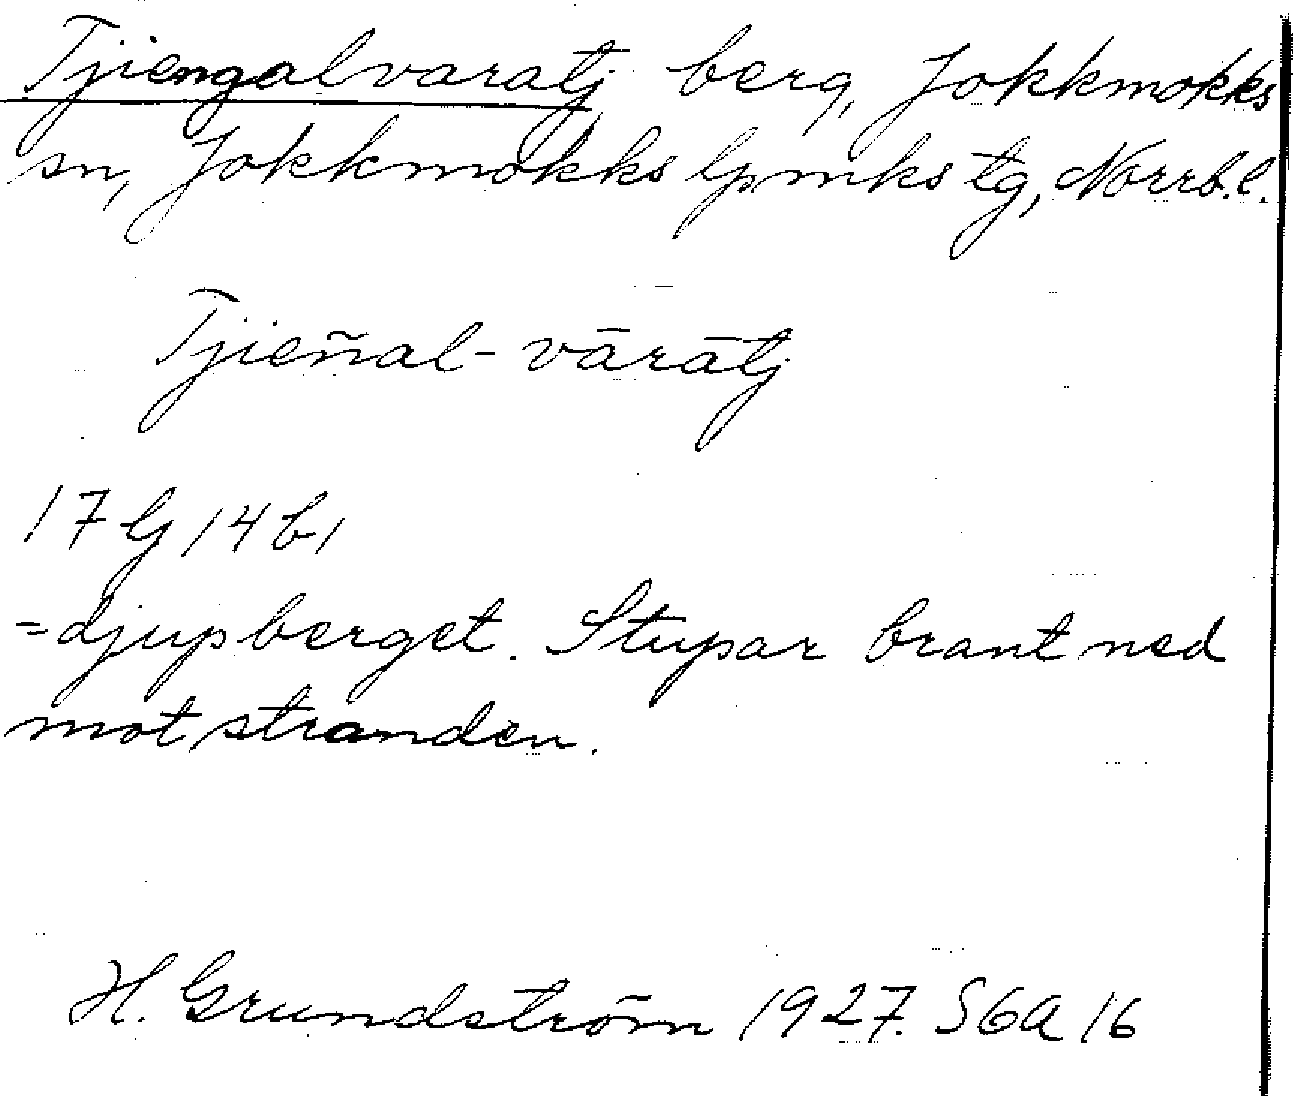 Tjiengalvaratj berg, Jokkmokks
sn, Jokkmokks lpmks tg, Norrb.l.
Tjieñal-vārātj
17 G 14 b1
=djupberget. Stupar brant ned
mot stranden.
H. Grundström 1927. S6a 16